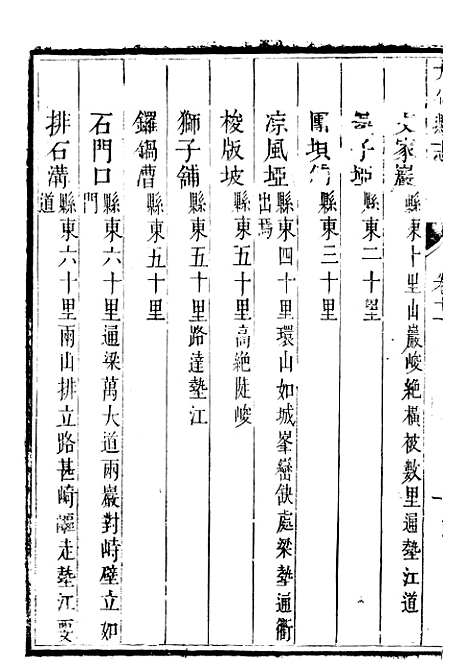 家巖縣東十里山巖峻絕橫被數里通墊江道
子埡縣東二十里
縣東三十里
凉風埡縣東四十里環山如城峯巒缺處梁墊通衢出焉
梭版坡縣東五十里高絕陡峻
獅子鋪縣東五十里路達墊江
鑼鍋漕縣東五十里
石門口縣東六十里通梁萬大道兩巖對峙壁立如門
排石溝縣東六十里兩山排立路甚崎嶇走墊江要道